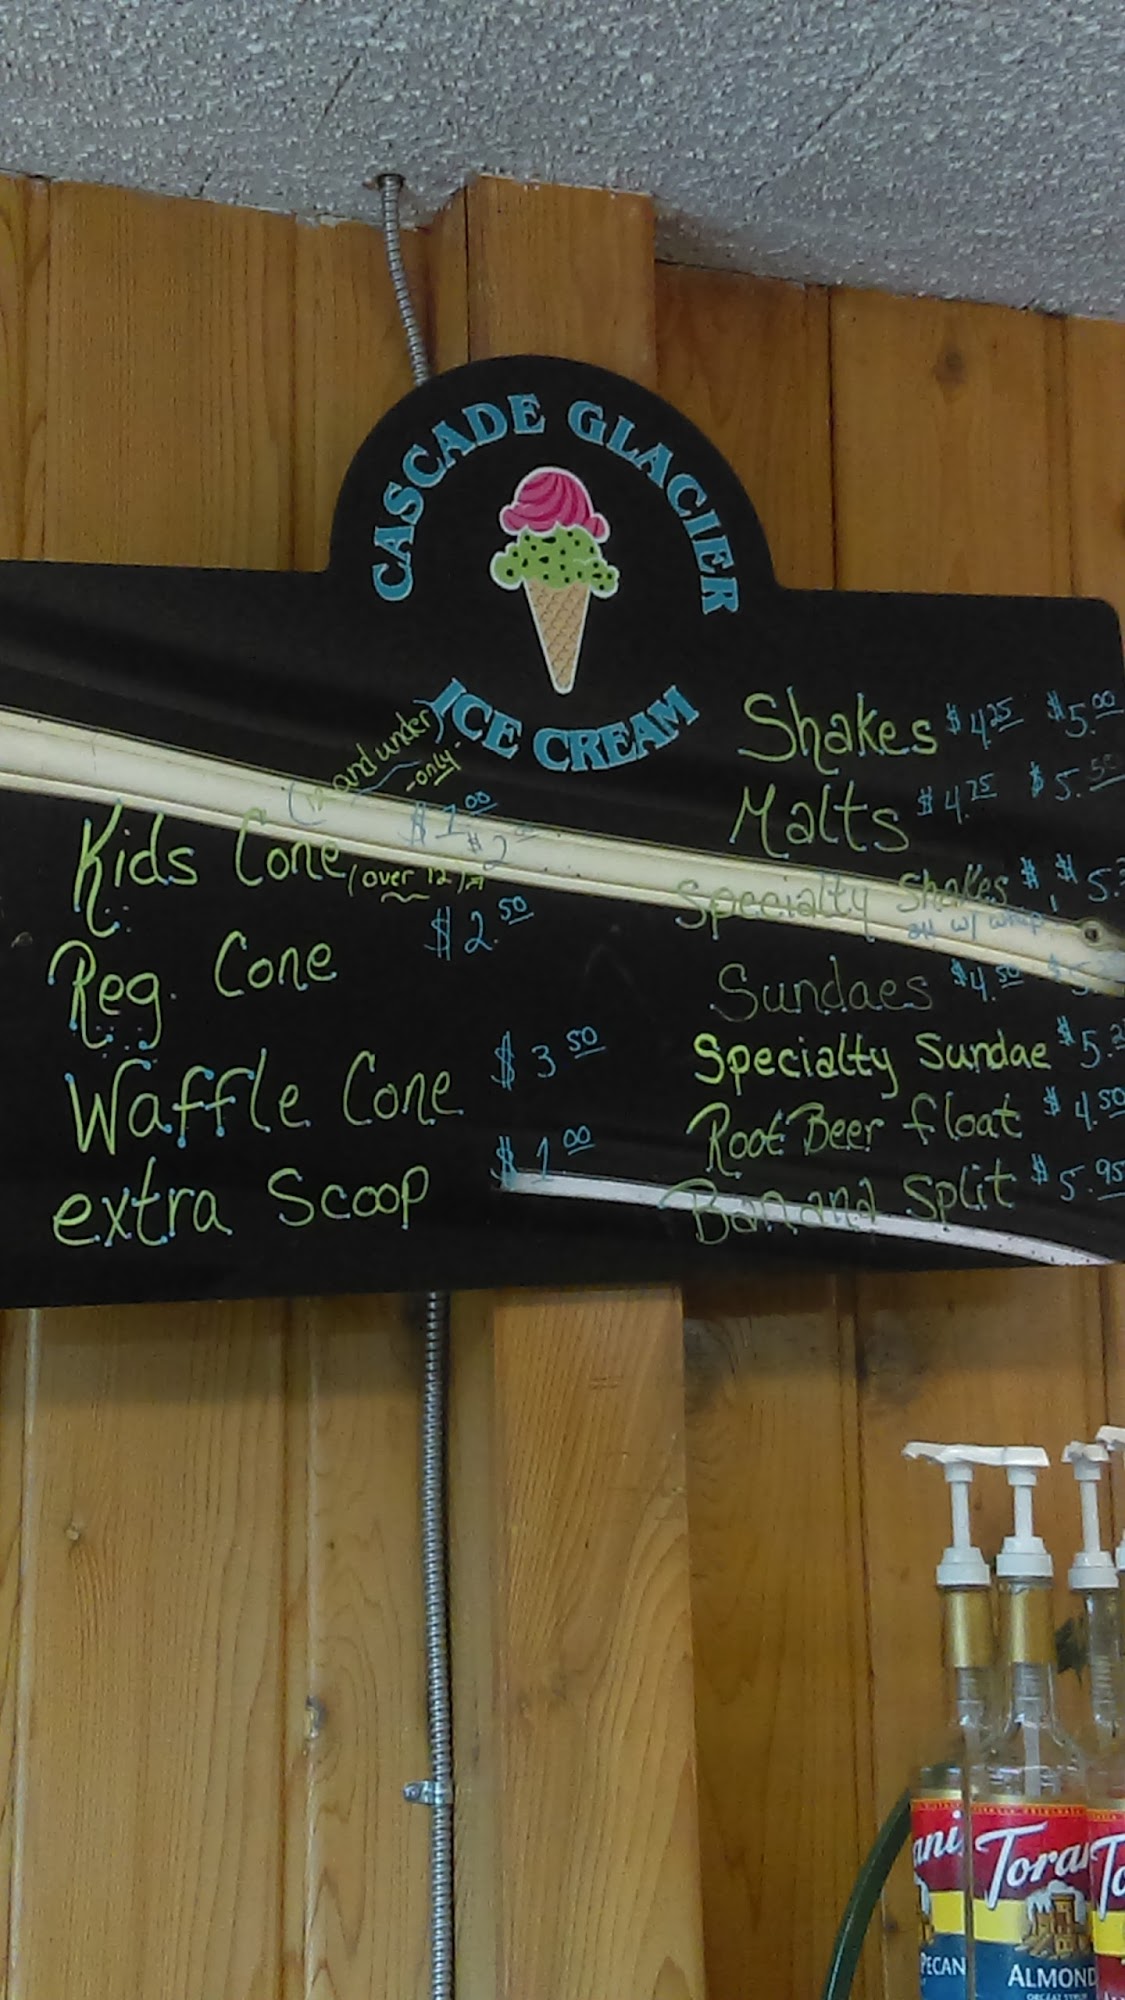 CASCADE GLACIER
ICE CREAM
and under)
-only-
Kids Cone $1.00
(over 12) $2.00
Reg. Cone $2.50
Waffle Cone $3.50
extra Scoop $1.00
Shakes $4.25 $5.00
Malts $4.75 $5.50
Specialty Shakes $ $5.
all w/ whip!
Sundaes $4.50 $5.
Specialty Sundae $5.2
Root Beer float $4.50
Banana Split $5.95
ani
Tora
To
PECAN
ALMOND